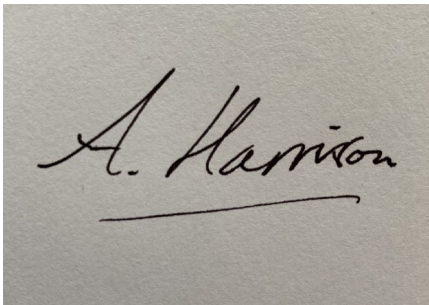 A. Harrison